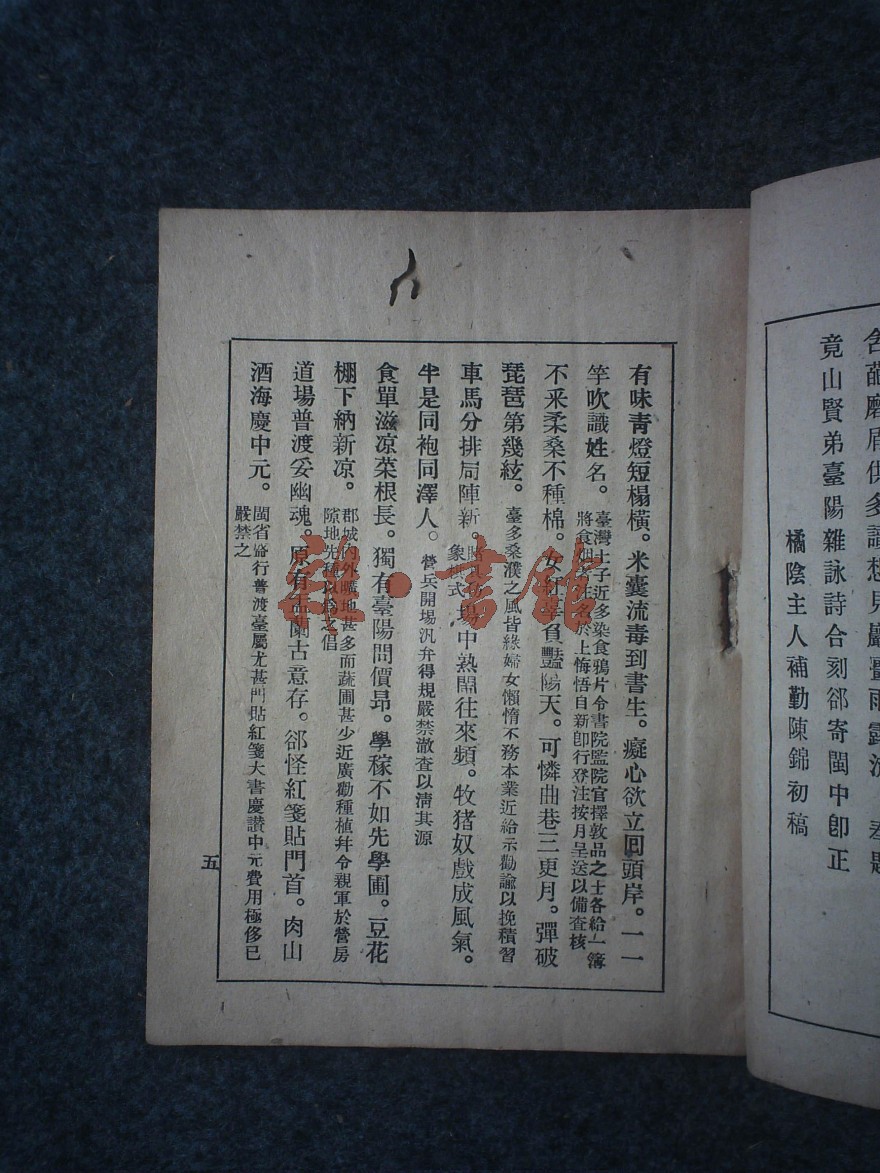 竟山賢弟臺陽雜詠詩合刻郤寄閩中卽正
橘陰主人補勤陳錦初稿
有味靑燈短榻橫。米囊流毒到書生。癡心欲立囘頭岸。一一
竽吹識姓名。臺灣士子近多染食鴉片令書院監院官擇敦品之士各給一簿
將食烟者注名於上悔悟自新卽行登注按月呈送以備查核
不采柔桑不種棉。女紅辜負豔陽天。可憐曲巷三更月。彈破
琵琶第幾絃。臺多桑濮之風皆緣婦女懶惰不務本業近給示勸諭以挽積習
車馬分排局陣新。
象棋式
場中熱鬧往來頻。牧猪奴戲成風氣。
半是同袍同澤人。營兵開場汛弁得規嚴禁澈查以淸其源
食單滋凉菜根長。獨有臺陽問價昻。學稼不如先學圃。豆花
棚下納新凉。郡城內外曠地甚多而蔬圃甚少近廣勸種植幷令親軍於營房
隙地先種以爲之倡
道場普渡妥幽魂。原有盂蘭古意存。郤怪紅箋貼門首。肉山
酒海慶中元。閩省盛行普渡臺屬尤甚門貼紅箋大書慶讚中元費用極侈已
嚴禁之
五
雜·書館